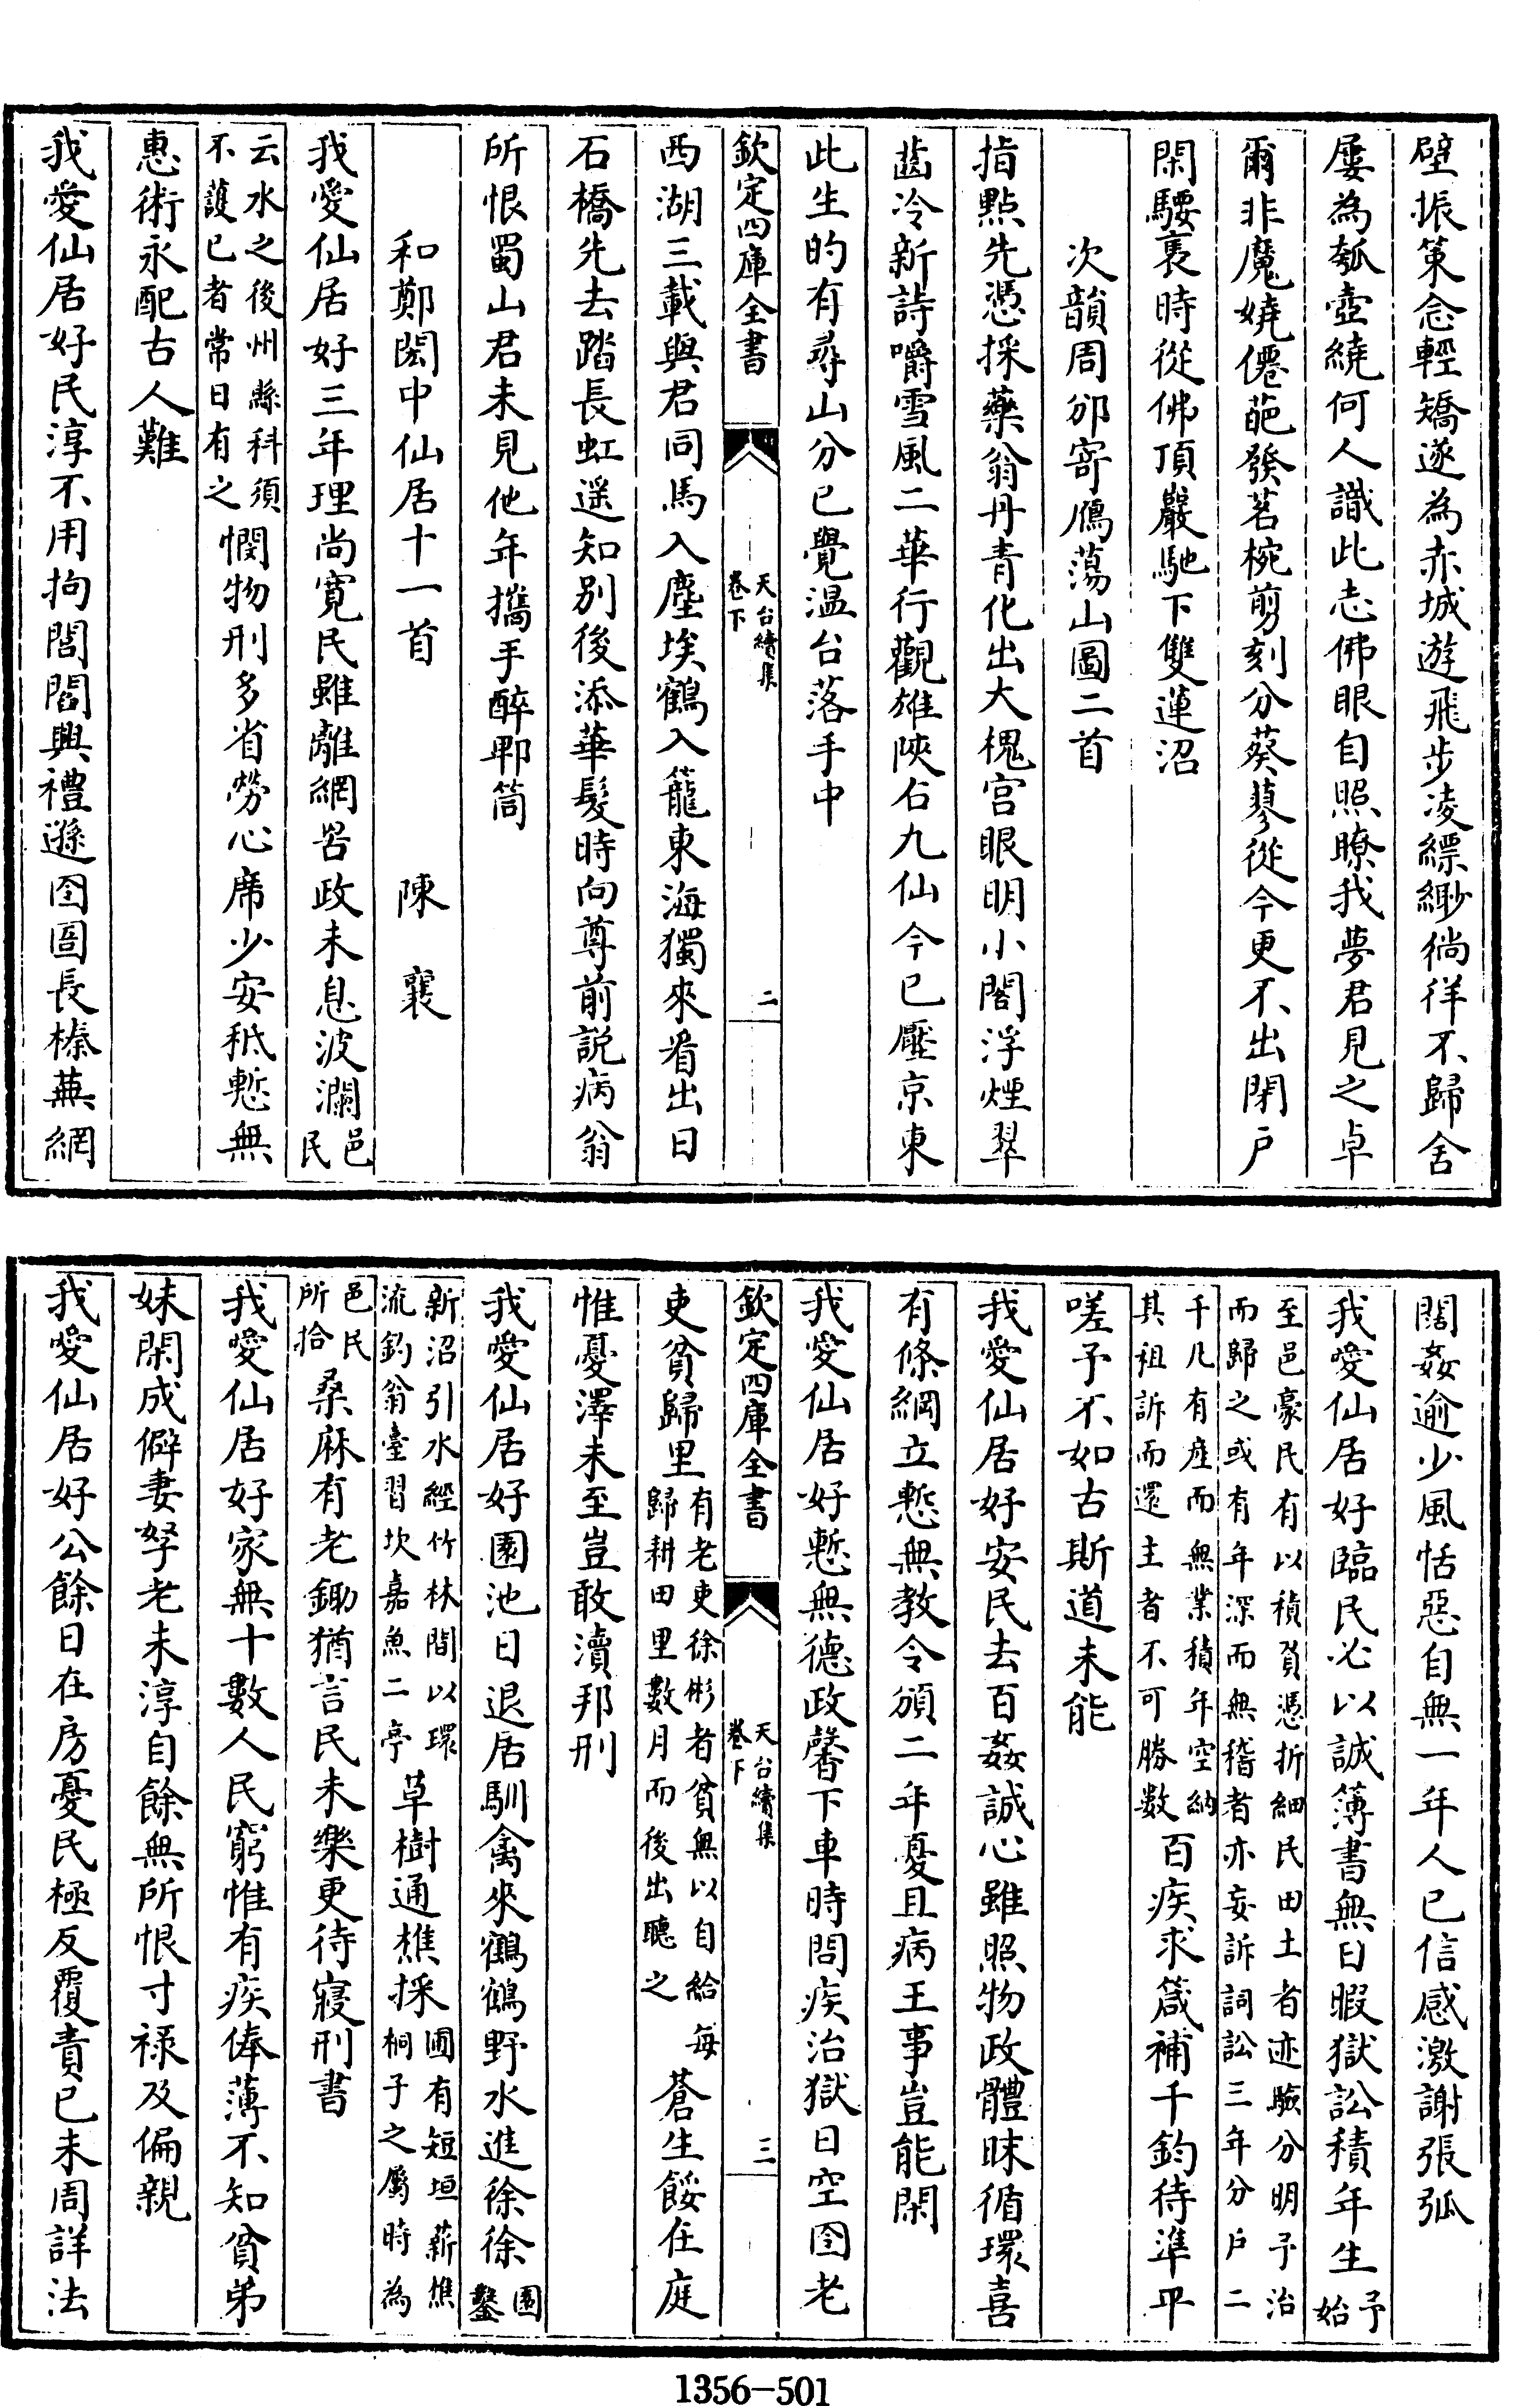 壁振策念輕矯遂為赤城遊飛步凌縹緲徜徉不歸舍
屢為瓠壺繞何人識此志佛眼自照瞭我夢君見之卓
爾非魔嬈僊葩發茗椀剪刻分葵蓼從今更不出閉戶
閑騕裹時從佛頂巖馳下雙蓮沼
次韻周邠寄鴈蕩山圖二首
指點先憑採藥翁丹青化出大槐宫眼明小閣浮煙翠
齒冷新詩嚼雪風二華行觀雄陜石九仙今已壓京東
此生的有尋山分已覺温台落手中
欽定四庫全書 天台續集卷下 二
西湖三載與君同馬入塵埃鶴入籠東海獨來看出日
石橋先去踏長虹遥知别後添華髮時向尊前説病翁
所恨蜀山君未見他年攜手醉郫筒
和鄭閎中仙居十一首 陳襄
我愛仙居好三年理尚寛民雖離網罟政未息波瀾邑民
云水之後州縣科須不䕶已者常日有之憫物刑多省勞心席少安秪慙無
惠術永配古人難
我愛仙居好民淳不用拘閭閻興禮遜囹圄長榛蕪網
闊姦逾少風恬惡自無一年人已信感激謝張弧
我愛仙居好臨民必以誠簿書無日暇獄訟積年生予始
至邑豪民有以積貨憑折細民田土者迹驗分明予治而歸之或有年深而無稽者亦妄訴詞訟三年分戶二
千凡有産而無業積年空納其祖訴而還主者不可勝数百疾求箴補千鈞待準平
嗟予不如古斯道未能
我愛仙居好安民去百姦誠心雖照物政體昧循環喜
有條綱立慙無教令頒二年憂且病王事豈能閑
我愛仙居好慙無德政馨下車時問疾治獄日空囹老
欽定四庫全書 天台續集卷下 三
吏貧歸里有老吏徐彬者貧無以自給每歸耕田里數月而後出聽之蒼生餒在庭
惟憂澤未至豈敢瀆邦刑
我愛仙居好園池日退居馴禽來鶴鶴野水進徐徐園鑿
新沼引水經竹林間以環流釣翁臺習坎嘉魚二亭草樹通樵採圃有短垣薪樵桐子之屬時為
邑民所拾桑麻有老鋤猶言民未樂更待寢刑書
我愛仙居好家無十數人民窮惟有疾俸薄不知貧弟
妹閑成僻妻孥老未淳自餘無所恨寸禄及偏親
我愛仙居好公餘日在房憂民極反覆責已未周詳法
1356-501